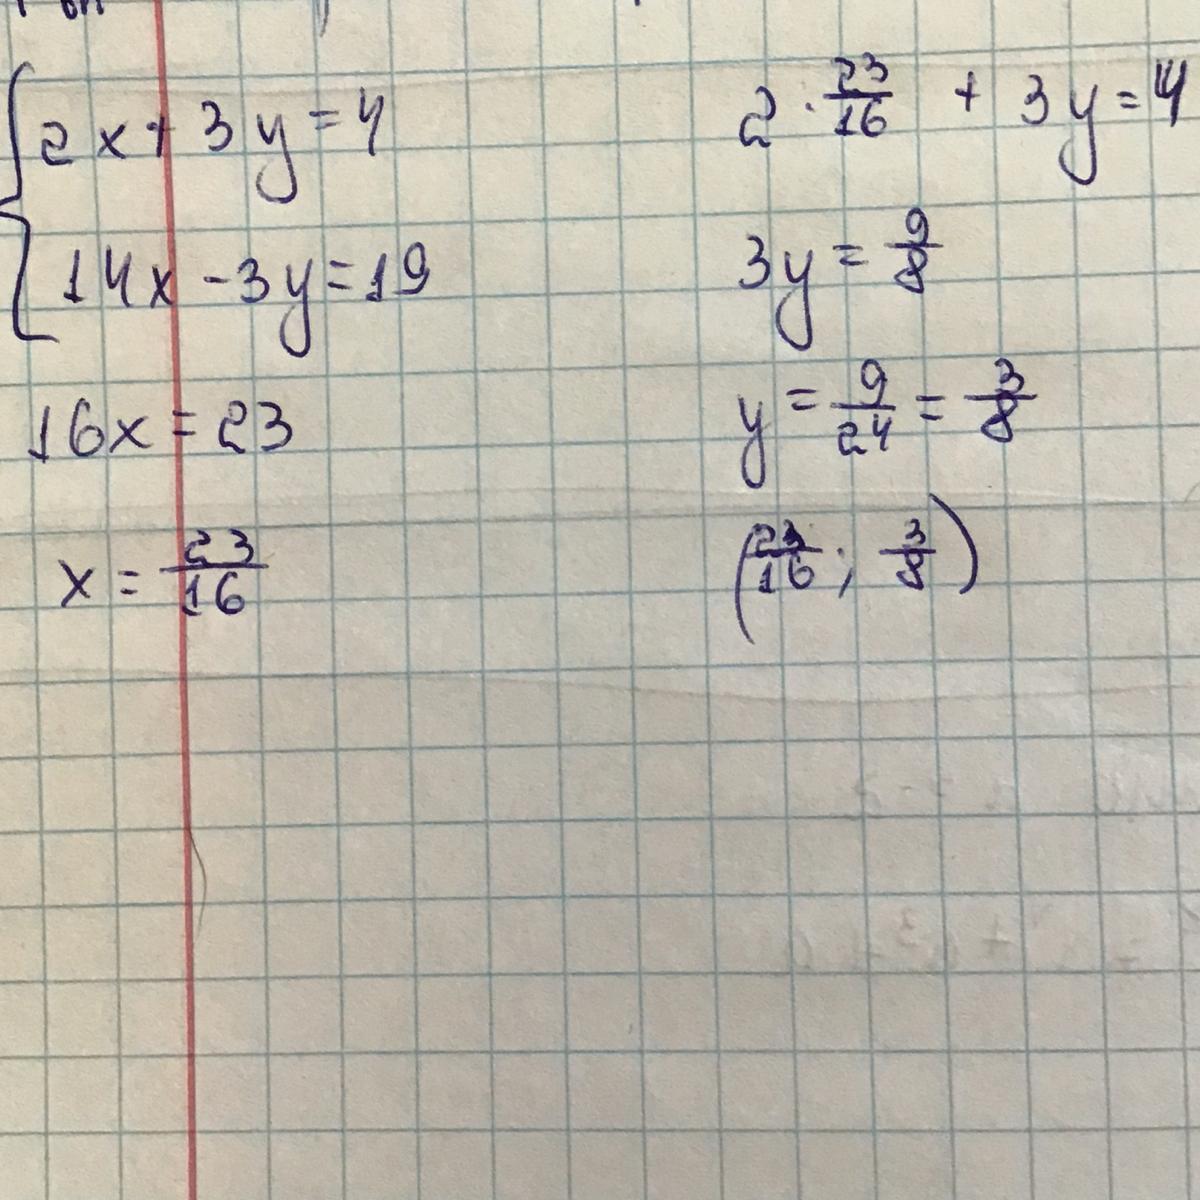 2x + 3y = 4
14x - 3y = 19
16x = 23
x = 23/16
2 · 23/16 + 3y = 4
3y = 9/8
y = 9/24 = 3/8
(23/16; 3/8)